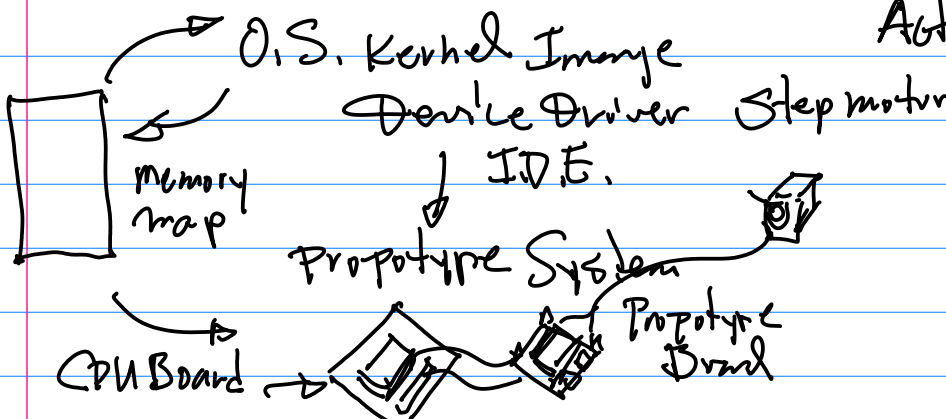 O.S. Kernel Image
Device Driver Step motor
I.D.E.
memory
map
Propotype System
Propotype
Brand
CPU Board